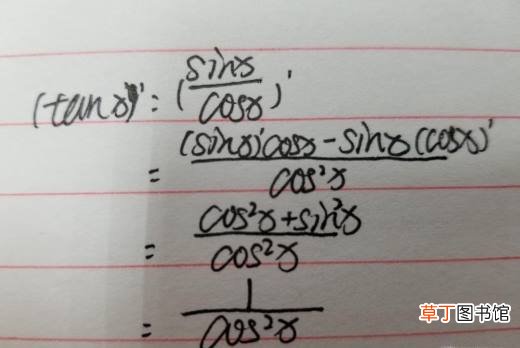 (tanx)' = (sinx/cosx)'
= (sinx)'cosx - sinx(cosx)'/cos²x
= cos²x + sin²x/cos²x
= 1/cos²x
草丁图书馆